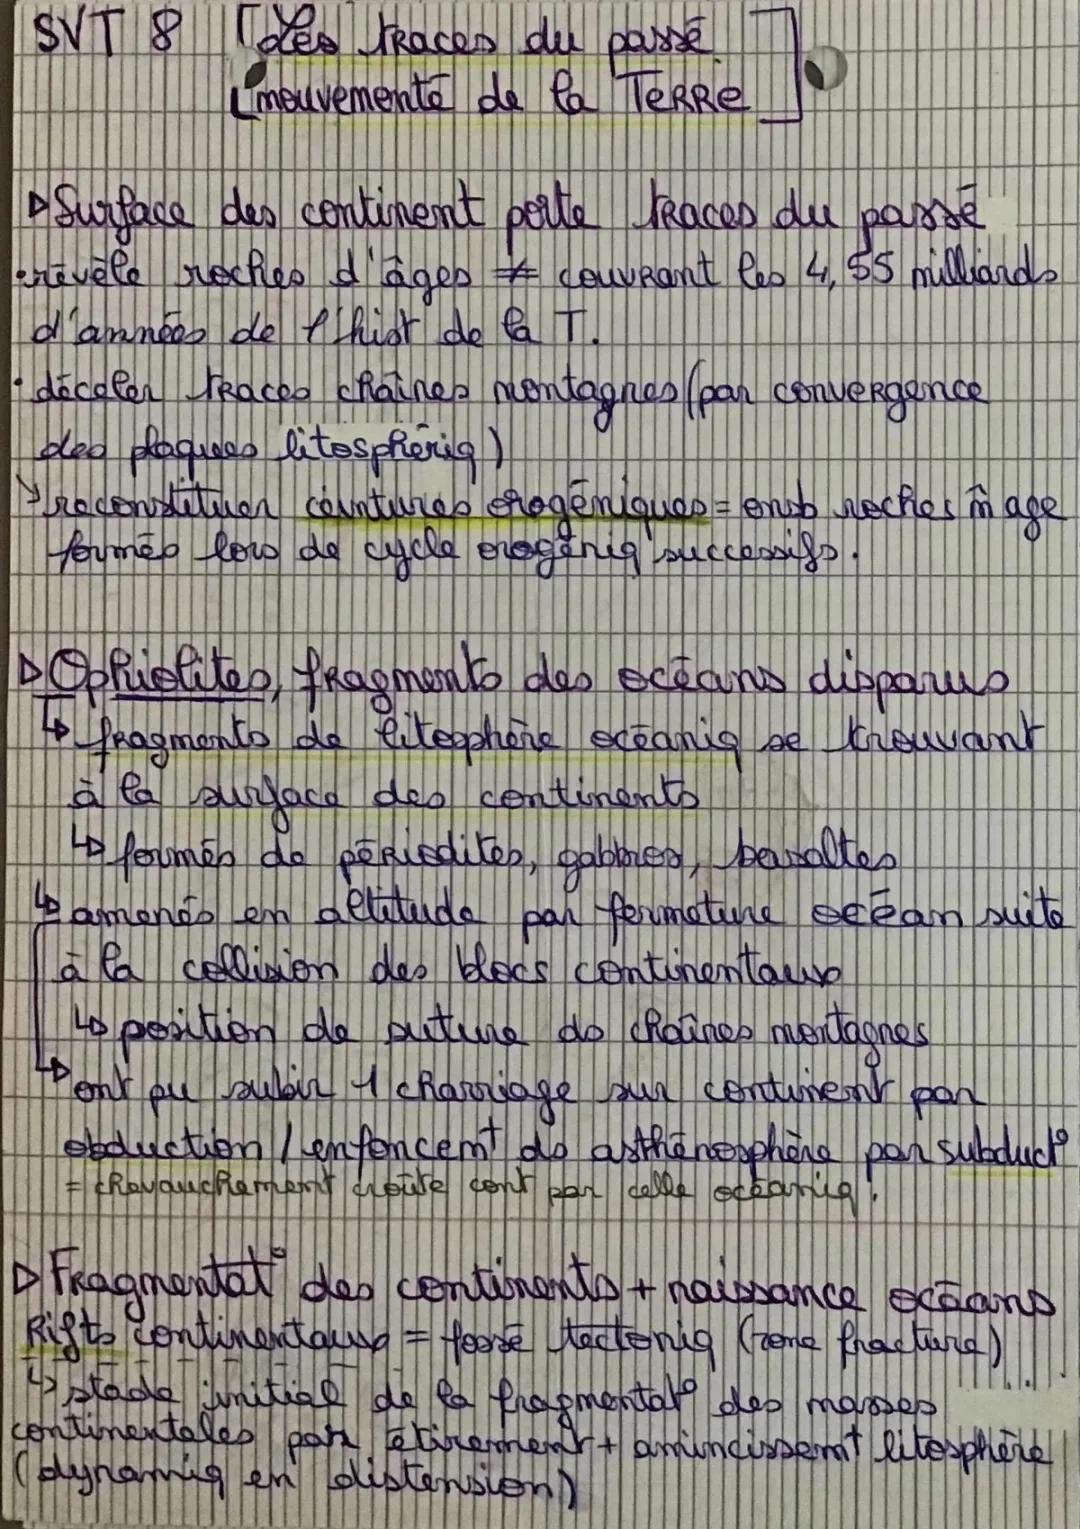 SVT 8 [Les traces du passé
mouvementé de la Terre]
▷ Surface des continent porte traces du passé
• révèle roches d'âges ≠ couvrant les 4,55 milliards
d'années de l'hist de la T.
• déceler traces chaînes montagnes (par convergence
des plaques litosphériq)
↘ reconstituer ceintures orogéniques = ensb roches m̂ age
formés lors de cycle orogéniq successifs.
▷ Ophiolites, fragments des océans disparus
↳ fragments de litosphère océaniq se trouvant
à la surface des continents
↳ formés de péridites, gabbros, basaltes
↳ amenés en altitude par fermeture océan suite
à la collision des blocs continentaux
↳ position de suture ds chaînes montagnes
↳ ont pu subir 1 charriage sur continent par
obduction / enfoncemt ds asthénosphère par subduct°
= chevauchement croûte cont par celle océaniq.
▷ Fragmentat° des continents + naissance océans
Rifts continentaux = fossé tectoniq (zone fracture)
↳ stade initial de la fragmentat° des masses
continentales par étirement + amincissemt litosphère
(dynamiq en distension)